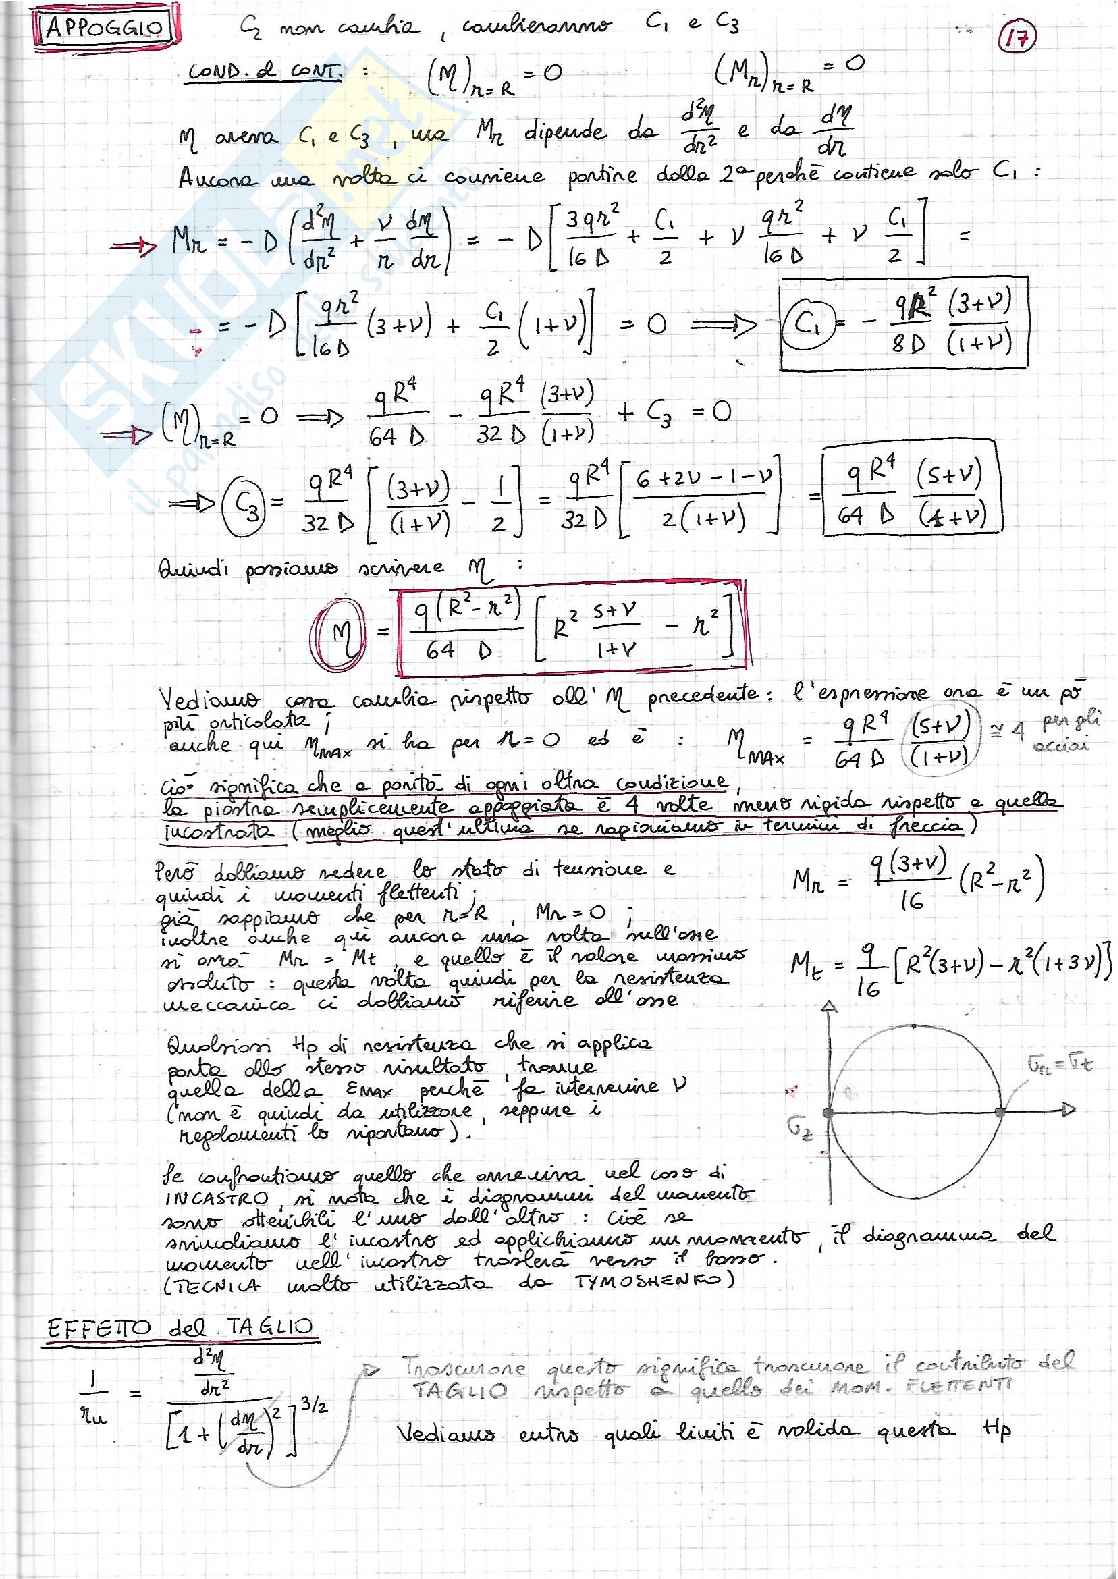 APPOGGIO C₂ non cambia, cambieranno C₁ e C₃ 17
COND. al CONT. : (η)r=R = 0 (Mr)r=R = 0
η aveva C₁ e C₃, ma Mr dipende da d²η/dr² e da dη/dr
Ancora una volta ci conviene partire dalla 2ª perchè contiene solo C₁ :
⇒ Mr = -D (d²η/dr² + ν/r dη/dr) = -D [3qr²/16D + C₁/2 + ν qr²/16D + ν C₁/2] =
= -D [qr²/16D (3+ν) + C₁/2 (1+ν)] = 0 ⇒ C₁ = - qR²/8D (3+ν)/(1+ν)
⇒ (η)r=R = 0 ⇒ qR⁴/64D - qR⁴/32D (3+ν)/(1+ν) + C₃ = 0
⇒ C₃ = qR⁴/32D [(3+ν)/(1+ν) - 1/2] = qR⁴/32D [6+2ν-1-ν/2(1+ν)] = qR⁴/64D (5+ν)/(1+ν)
Quindi possiamo scrivere η :
η = q(R²-r²)/64D [R² 5+ν/1+ν - r²]
Vediamo cosa cambia rispetto all'η precedente: l'espressione ora è un pò
più articolata ;
anche qui ηMAX si ha per r=0 ed è : ηMAX = qR⁴/64D (5+ν)/(1+ν) ≅ 4 per gli acciai
Ciò significa che a parità di ogni altra condizione,
la piastra semplicemente appoggiata è 4 volte meno rigida rispetto a quella
incastrata (meglio quest'ultima se ragioniamo in termini di freccia)
Però dobbiamo vedere lo stato di tensione e
quindi i momenti flettenti ;
già sappiamo che per r=R, Mr=0 ;
inoltre anche qui ancora una volta sull'asse
si avrà Mr = Mt, e quello è il valore massimo
assoluto : questa volta quindi per la resistenza
meccanica ci dobbiamo riferire all'asse
Mr = q(3+ν)/16 (R²-r²)
Mt = q/16 [R²(3+ν) - r²(1+3ν)]
Qualsiasi Hp di resistenza che si applica
porta allo stesso risultato, tranne
quella della εMAX perchè fa intervenire ν
(non è quindi da utilizzare, seppure i
regolamenti lo riportano).
σr = σt
σz
Se confrontiamo quello che avveniva nel caso di
INCASTRO, si nota che i diagrammi del momento
sono ottenibili l'uno dall'altro : cioè se
svincoliamo l'incastro ed applichiamo un momento, il diagramma del
momento nell'incastro traslerà verso il basso.
(TECNICA molto utilizzata da TYMOSHENKO)
EFFETTO del TAGLIO
1/ru = d²η/dr² / [1+(dη/dr)²]^3/2
Trascurare questo significa trascurare il contributo del
TAGLIO rispetto a quello dei MOM. FLETTENTI
Vediamo entro quali limiti è valida questa Hp
SKUOLA.net
il paradiso